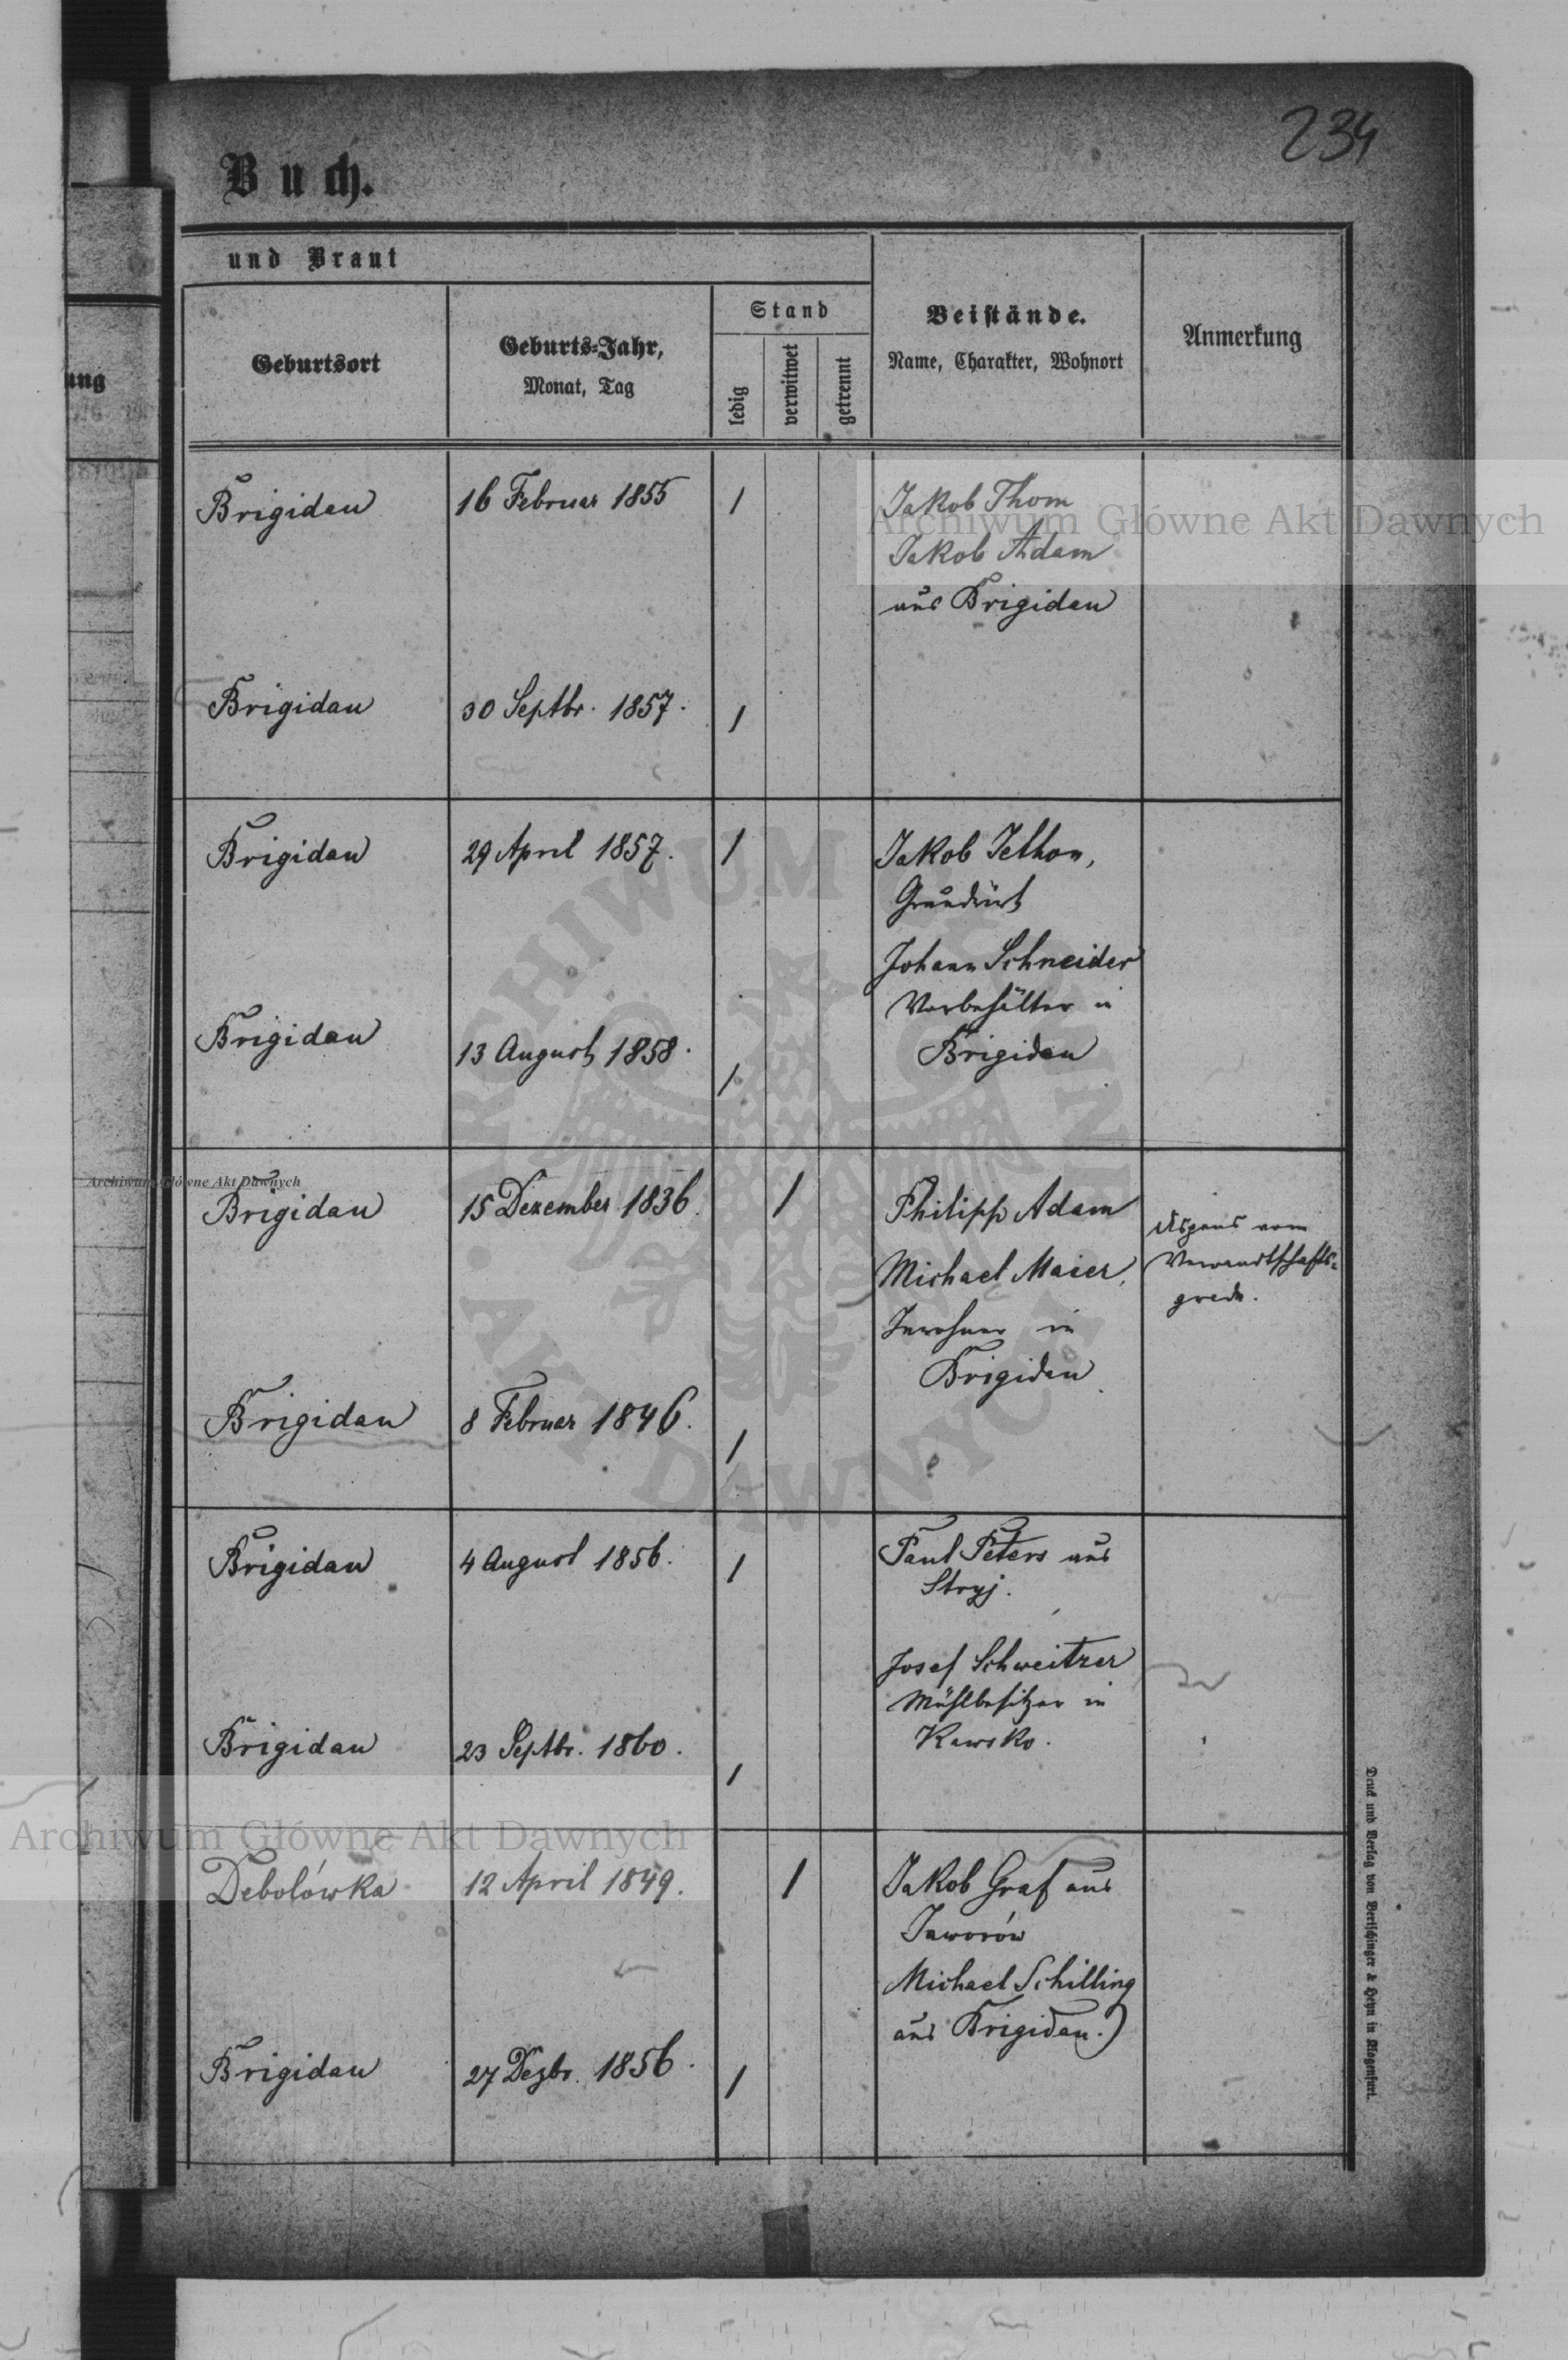 234
Buch.
und Braut
Geburtsort
Geburts-Jahr,
Monat, Tag
Stand
ledig
verwitwet
getrennt
Beistände.
Name, Charakter, Wohnort
Anmerkung
ung
Brigidau
16 Februar 1855
1
Jakob Thom
Jakob Adam
aus Brigidau
Brigidau
30 Septbr. 1857.
1
Brigidau
29 April 1857.
1
Jakob Jethon,
Grundwirt
Johann Schneider
Vorbehälter in
Brigidau
Brigidau
13 August 1858.
1
Brigidau
15 Dezember 1836.
1
Philipp Adam
Michael Maier,
Inwohner in
Brigidau
vom
Verwandtschafts-
grade.
Brigidau
8 Februar 1846.
1
Brigidau
4 August 1856.
1
Paul Peters aus
Stryj.
Josef Schweitzer
Mühlbesitzer in
Kawsko.
Brigidau
23 Septbr. 1860.
1
Debolówka
12 April 1849.
1
Jakob Graf aus
Jaworów
Michael Schilling
aus Brigidau.)
Brigidau
27 Dezbr. 1856.
1
Druck und Verlag von Bertschinger & Heyn in Klagenfurt.
Archiwum Główne Akt Dawnych
Archiwum Główne Akt Dawnych
Archiwum Główne Akt Dawnych
ARCHIWUM GŁÓWNE
AKT DAWNYCH